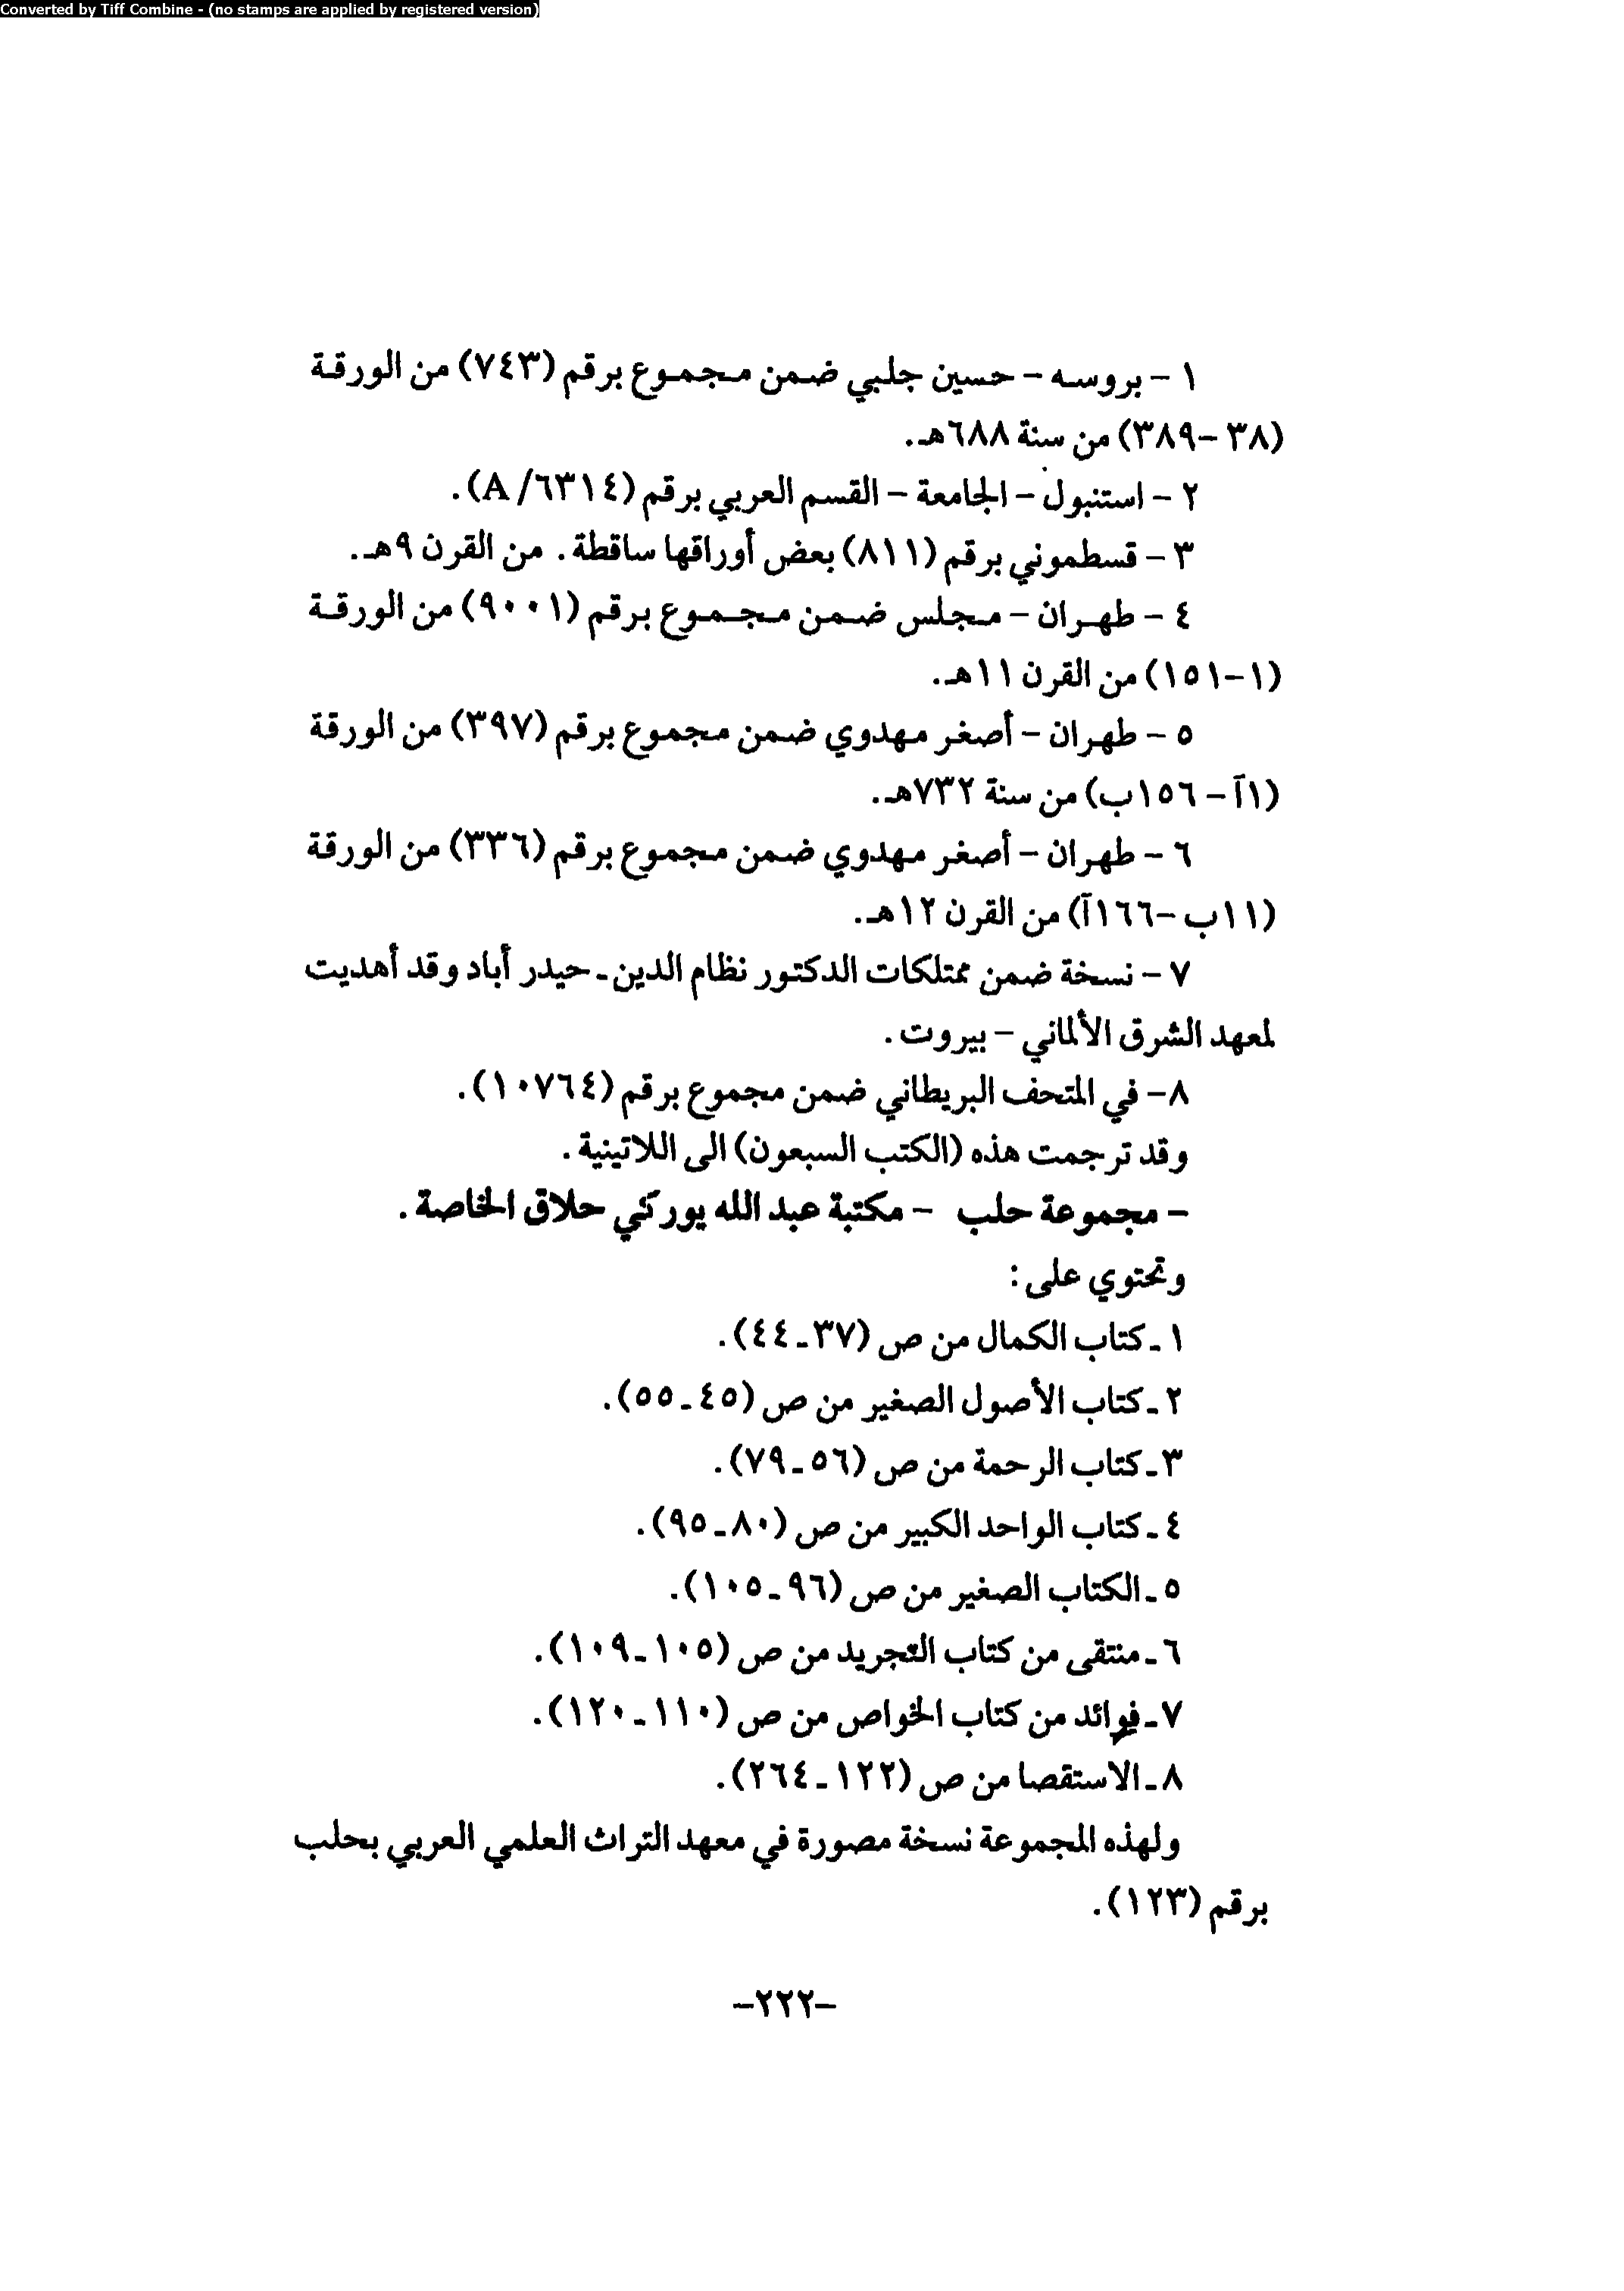 Converted by Tiff Combine - (no stamps are applied by registered version)
١ - بروسه - حسين جلبي ضمن مجموع برقم (٧٤٣) من الورقة
(٣٨ -٣٨٩) من سنة ٦٨٨هـ.
٢ - استنبول - الجامعة - القسم العربي برقم (A/٦٣١٤).
٣ - قسطموني برقم (٨١١) بعض أوراقها ساقطة. من القرن ٩هـ.
٤ - طهران - مجلس ضمن مجموع برقم (٩٠٠١) من الورقة
(١-١٥١) من القرن ١١هـ.
٥ - طهران - أصغر مهدوي ضمن مجموع برقم (٣٩٧) من الورقة
(١آ - ١٥٦ب) من سنة ٧٣٢هـ.
٦ - طهران - أصغر مهدوي ضمن مجموع برقم (٣٣٦) من الورقة
(١١ب -١٦٦آ) من القرن ١٢هـ.
٧ - نسخة ضمن ممتلكات الدكتور نظام الدين - حيدر أباد وقد أهديت
لمعهد الشرق الألماني - بيروت.
٨- في المتحف البريطاني ضمن مجموع برقم (١٠٧٦٤).
وقد ترجمت هذه (الكتب السبعون) الى اللاتينية.
- مجموعة حلب - مكتبة عبد الله يوركي حلاق الخاصة.
وتحتوي على:
١ - كتاب الكمال من ص (٣٧ - ٤٤).
٢ - كتاب الأصول الصغير من ص (٤٥ - ٥٥).
٣ - كتاب الرحمة من ص (٥٦ - ٧٩).
٤ - كتاب الواحد الكبير من ص (٨٠ - ٩٥).
٥ - الكتاب الصغير من ص (٩٦ - ١٠٥).
٦ - منتقى من كتاب التجريد من ص (١٠٥ - ١٠٩).
٧ - فوائد من كتاب الخواص من ص (١١٠ - ١٢٠).
٨ - الاستقصا من ص (١٢٢ - ٢٦٤).
ولهذه المجموعة نسخة مصورة في معهد التراث العلمي العربي بحلب
برقم (١٢٣).
-٢٢٢-